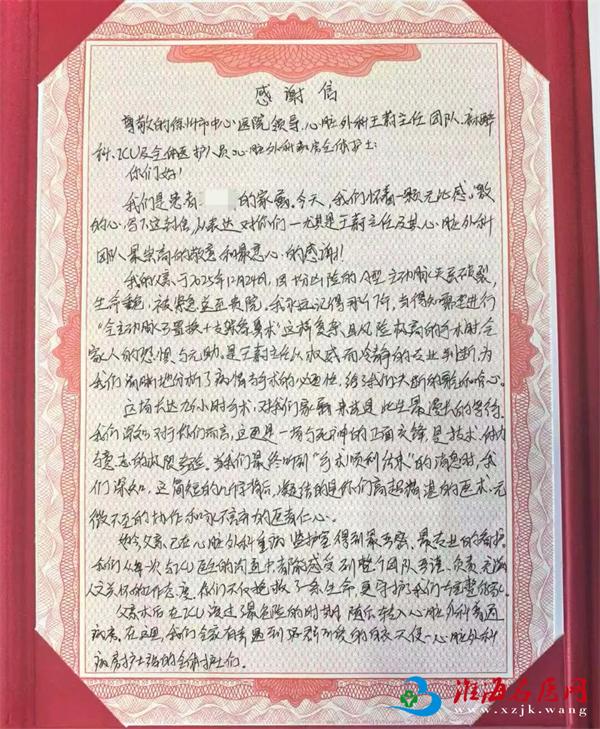 感谢信
尊敬的徐州市中心医院领导、心脏外科王蔚主任团队、麻醉
科、ICU及全体医护人员心脏外科病房全体护士:
你们好!
我们是患者 的家属。今天,我们怀着一颗无比感激
的心,写下这封信,以表达对你们—尤其是王蔚主任及其心脏外科
团队最崇高的敬意和最衷心的感谢!
我的父亲于2025年12月24日,因 凶险的A型主动脉夹层破裂,
生命垂危,被紧急送至贵院。我永远记得那个下午,当得知需要进行
"全主动脉弓置换+支架象鼻术"这样复杂且风险极高的手术时全
家人的恐惧与无助。是王蔚主任以权威而冷静的专业判断,为
我们清晰地分析了病情与手术的必要性,给了我们 的 和信心。
这场长达 小时手术,对我们家属来说是此生最漫长的等待。
我们深知对于你们而言,这更是一场与死神的正面交锋,是技术、体力
与意志的极限考验。当我们最终听到"手术顺利结束"的消息时,我
们深知,这简短的几个字背后,凝结的是你们高超精湛的医术、无
微不至的协作和永不言弃的医者仁心。
如今父亲已在心脏外科重症监护室得到最 、最专业的看护。
我们从每次与ICU医生的沟通中都能感受到整个团队 、负责、充满
人文关怀的工作态度。你们不仅挽救了一条生命,更守护了我们 完整的家。
父亲术后在ICU渡过最危险的时期,随后转入心脏外科普通
病房。在这里,我们全家有幸遇到 的白衣天使—心脏外科
病房 的全体护士们。
淮海名医网
www.xzjk.wang